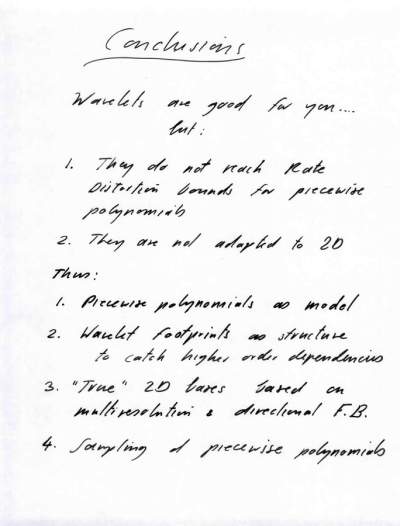 Conclusions
Wavelets are good for you....
but:
1. They do not reach Rate
Distortion bounds for piecewise
polynomials
2. They are not adapted to 2D
Thus:
1. Piecewise polynomials as model
2. Wavelet footprints as structure
to catch higher order dependencies
3. "True" 2D bases based on
multiresolution & directional F.B.
4. Sampling of piecewise polynomials